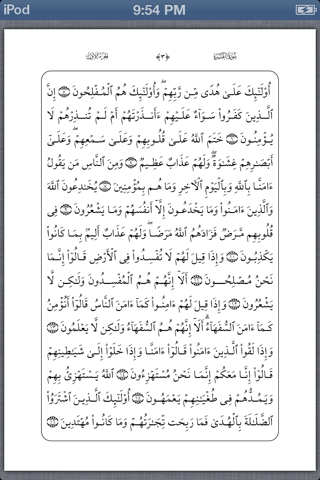 iPod 9:54 PM
سُورَةُ البَقَرَةِ ﴿٣﴾ الجُزءُ الأوّلُ
أُو۟لَـٰٓئِكَ عَلَىٰ هُدًى مِّن رَّبِّهِمْ ۖ وَأُو۟لَـٰٓئِكَ هُمُ ٱلْمُفْلِحُونَ ۝ إِنَّ
ٱلَّذِينَ كَفَرُوا۟ سَوَآءٌ عَلَيْهِمْ ءَأَنذَرْتَهُمْ أَمْ لَمْ تُنذِرْهُمْ لَا
يُؤْمِنُونَ ۝ خَتَمَ ٱللَّهُ عَلَىٰ قُلُوبِهِمْ وَعَلَىٰ سَمْعِهِمْ ۖ وَعَلَىٰٓ
أَبْصَـٰرِهِمْ غِشَـٰوَةٌ ۖ وَلَهُمْ عَذَابٌ عَظِيمٌ ۝ وَمِنَ ٱلنَّاسِ مَن يَقُولُ
ءَامَنَّا بِٱللَّهِ وَبِٱلْيَوْمِ ٱلْـَٔاخِرِ وَمَا هُم بِمُؤْمِنِينَ ۝ يُخَـٰدِعُونَ ٱللَّهَ
وَٱلَّذِينَ ءَامَنُوا۟ وَمَا يَخْدَعُونَ إِلَّآ أَنفُسَهُمْ وَمَا يَشْعُرُونَ ۝ فِى
قُلُوبِهِم مَّرَضٌ فَزَادَهُمُ ٱللَّهُ مَرَضًا ۖ وَلَهُمْ عَذَابٌ أَلِيمٌۢ بِمَا كَانُوا۟
يَكْذِبُونَ ۝ وَإِذَا قِيلَ لَهُمْ لَا تُفْسِدُوا۟ فِى ٱلْأَرْضِ قَالُوٓا۟ إِنَّمَا
نَحْنُ مُصْلِحُونَ ۝ أَلَآ إِنَّهُمْ هُمُ ٱلْمُفْسِدُونَ وَلَـٰكِن لَّا
يَشْعُرُونَ ۝ وَإِذَا قِيلَ لَهُمْ ءَامِنُوا۟ كَمَآ ءَامَنَ ٱلنَّاسُ قَالُوٓا۟ أَنُؤْمِنُ
كَمَآ ءَامَنَ ٱلسُّفَهَآءُ ۗ أَلَآ إِنَّهُمْ هُمُ ٱلسُّفَهَآءُ وَلَـٰكِن لَّا يَعْلَمُونَ ۝
وَإِذَا لَقُوا۟ ٱلَّذِينَ ءَامَنُوا۟ قَالُوٓا۟ ءَامَنَّا وَإِذَا خَلَوْا۟ إِلَىٰ شَيَـٰطِينِهِمْ
قَالُوٓا۟ إِنَّا مَعَكُمْ إِنَّمَا نَحْنُ مُسْتَهْزِءُونَ ۝ ٱللَّهُ يَسْتَهْزِئُ بِهِمْ
وَيَمُدُّهُمْ فِى طُغْيَـٰنِهِمْ يَعْمَهُونَ ۝ أُو۟لَـٰٓئِكَ ٱلَّذِينَ ٱشْتَرَوُا۟
ٱلضَّلَـٰلَةَ بِٱلْهُدَىٰ فَمَا رَبِحَت تِّجَـٰرَتُهُمْ وَمَا كَانُوا۟ مُهْتَدِينَ ۝